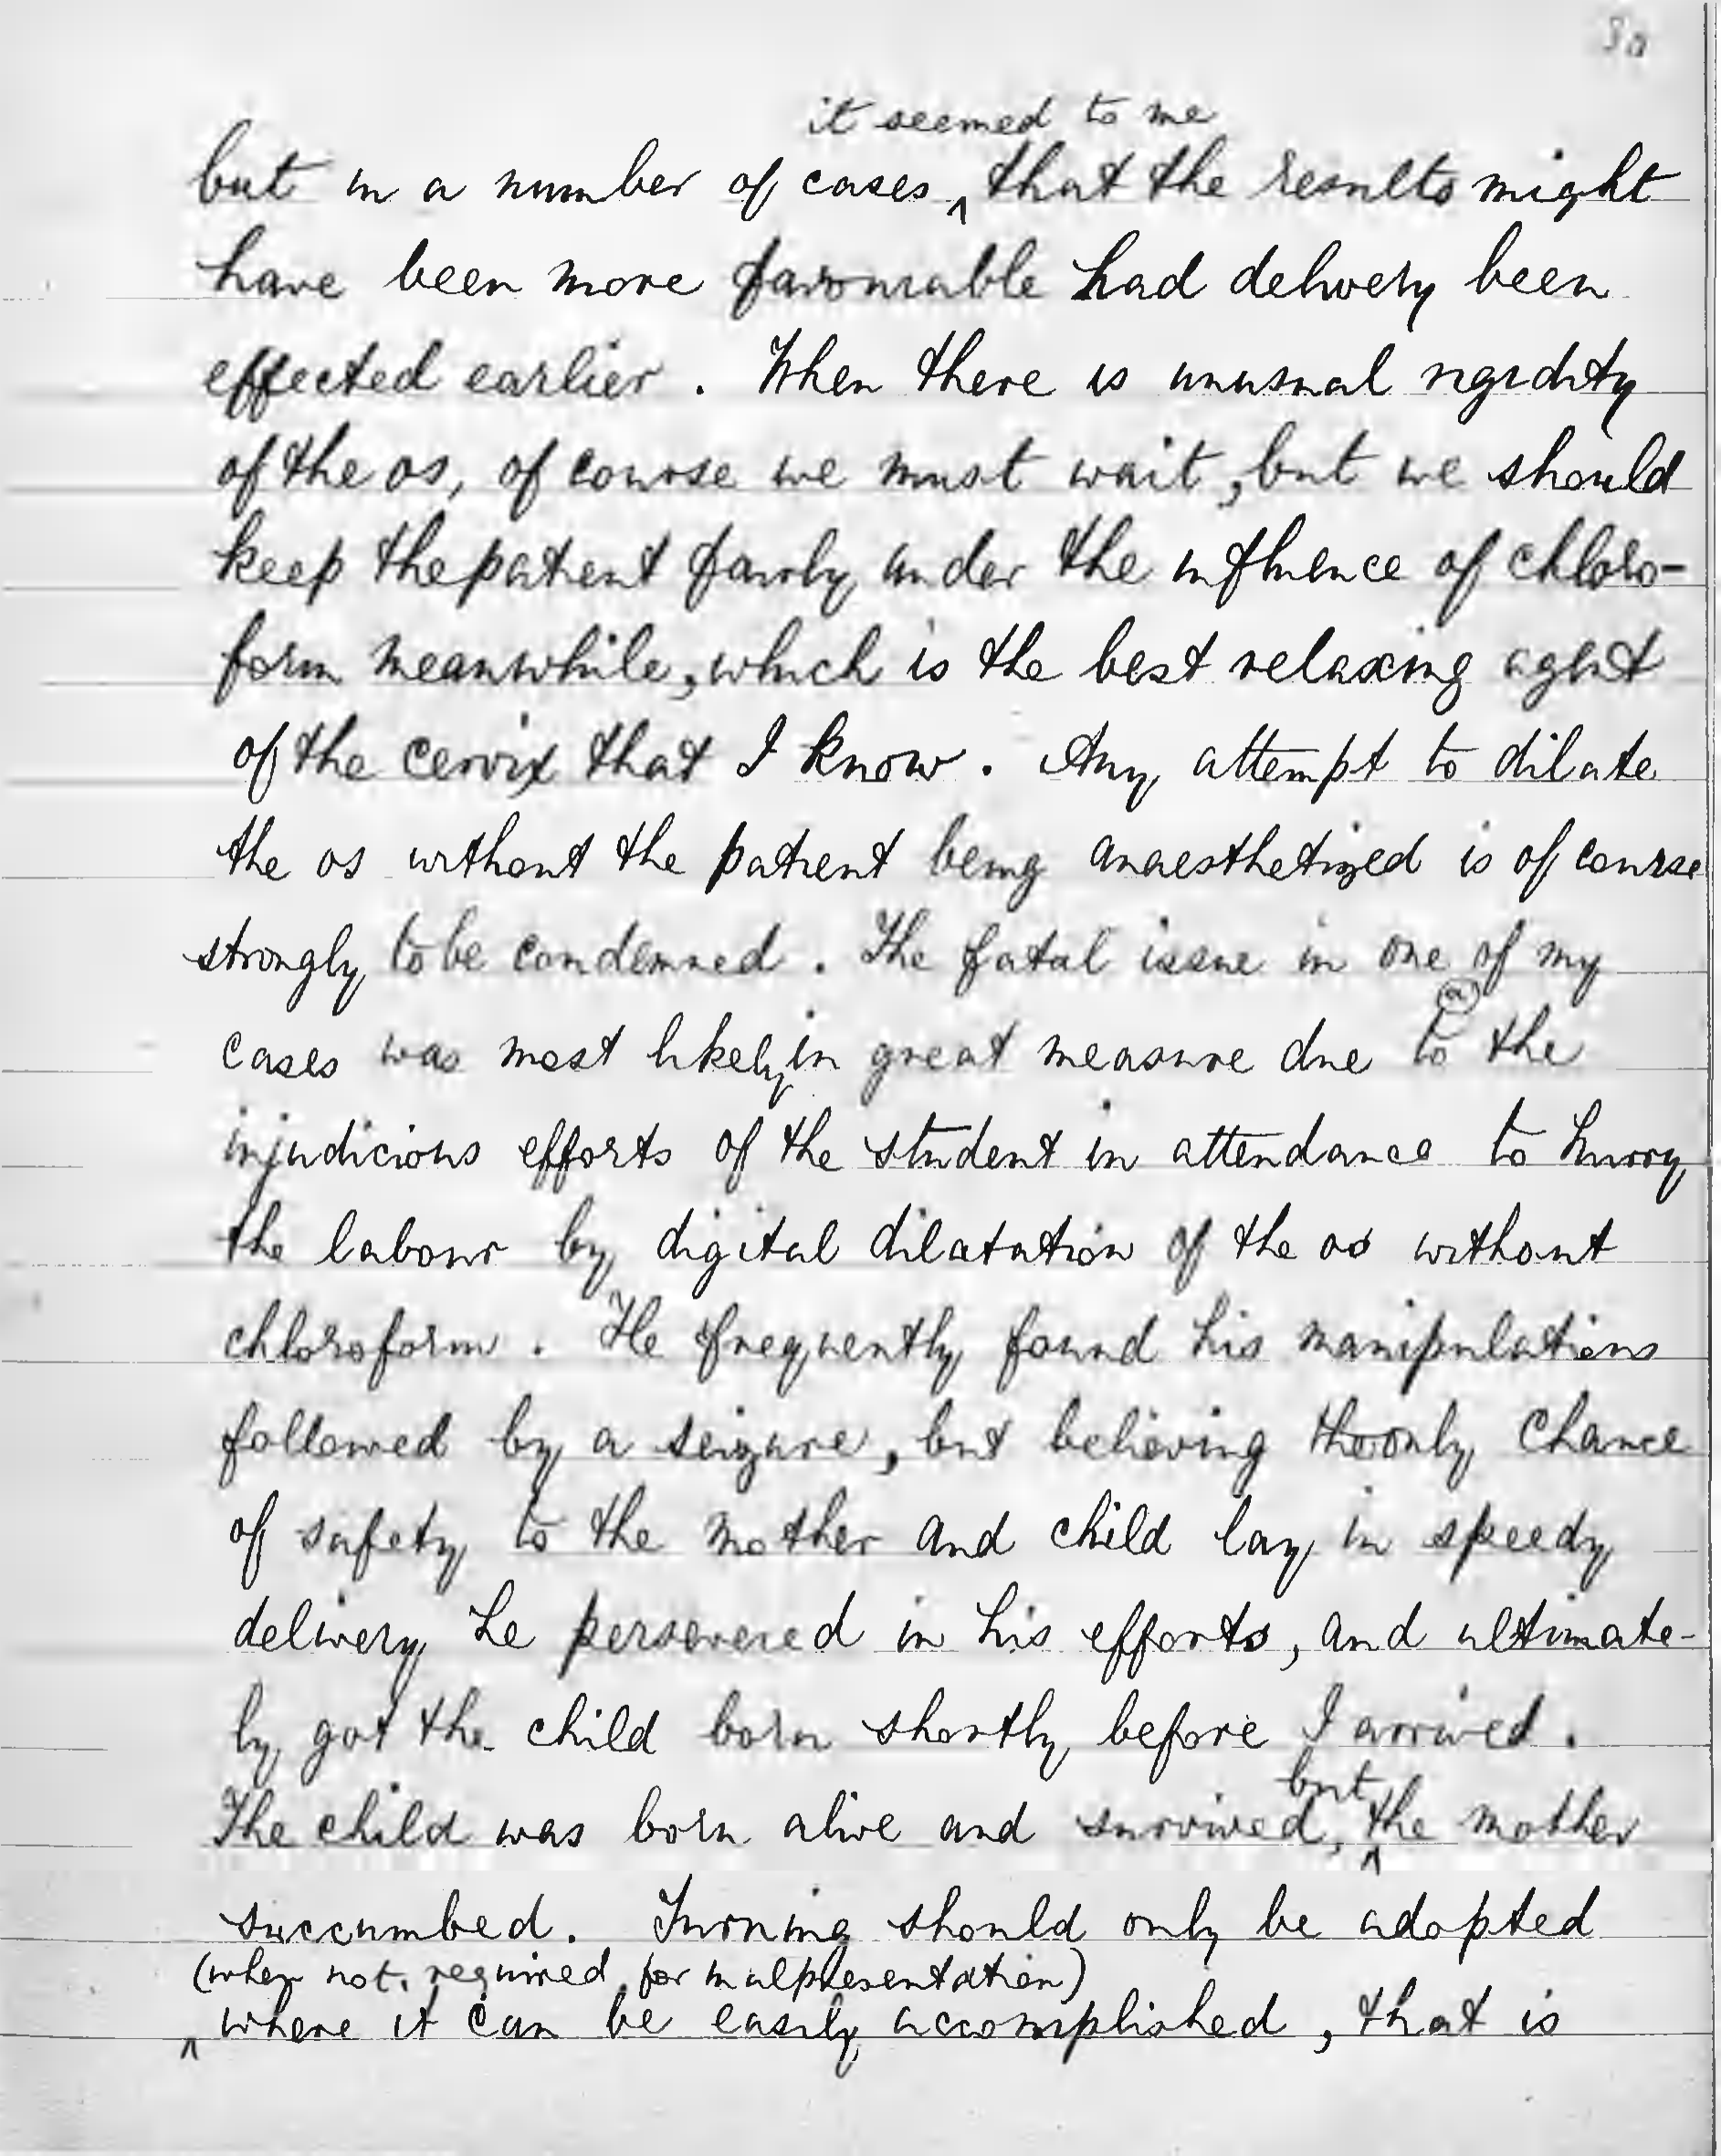 it seemed to me
but in a number of cases ‸ that the results might
have been more favourable had delivery been
effected earlier . When there is unusual rigidity
of the os, of course we must wait, but we should
keep the patient fairly under the influence of chloro-
form meanwhile, which is the best relaxing agent
of the cervix that I know . Any attempt to dilate
the os without the patient being anaesthetized is of course
strongly to be condemned . The fatal issue in one of my
(a)
cases was most likely in great measure due to the
injudicious efforts of the student in attendance to hurry
the labour by digital dilatation of the os without
chloroform . He frequently found his manipulations
followed by a seizure, but believing the only chance
of safety to the mother and child lay in speedy
delivery he persevered in his efforts, and ultimate-
ly got the child born shortly before I arrived .
but
The child was born alive and survived, ‸ the mother
succumbed. Turning should only be adopted
(when not required for malpresentation)
‸ where it can be easily accomplished, that is